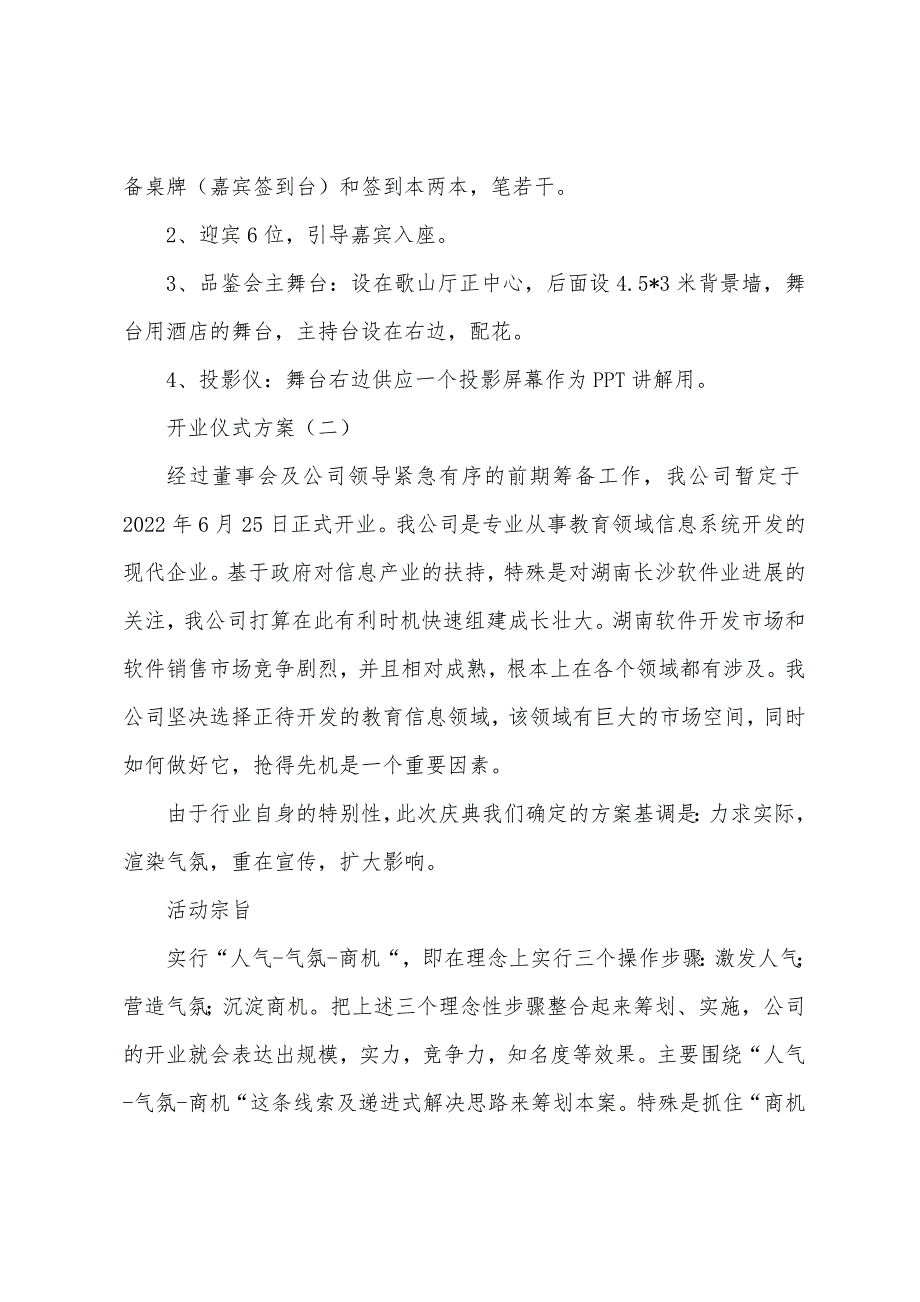 备桌牌（嘉宾签到台）和签到本两本，笔若干。
2、迎宾 6 位，引导嘉宾入座。
3、品鉴会主舞台：设在歌山厅正中心，后面设 4.5*3 米背景墙，舞
台用酒店的舞台，主持台设在右边，配花。
4、投影仪：舞台右边供应一个投影屏幕作为 PPT 讲解用。
开业仪式方案（二）
经过董事会及公司领导紧急有序的前期筹备工作，我公司暂定于
2022 年 6 月 25 日正式开业。我公司是专业从事教育领域信息系统开发的
现代企业。基于政府对信息产业的扶持，特殊是对湖南长沙软件业进展的
关注，我公司打算在此有利时机快速组建成长壮大。湖南软件开发市场和
软件销售市场竞争剧烈，并且相对成熟，根本上在各个领域都有涉及。我
公司坚决选择正待开发的教育信息领域，该领域有巨大的市场空间，同时
如何做好它，抢得先机是一个重要因素。
由于行业自身的特别性，此次庆典我们确定的方案基调是：力求实际，
渲染气氛，重在宣传，扩大影响。
活动宗旨
实行“人气-气氛-商机“，即在理念上实行三个操作步骤：激发人气；
营造气氛；沉淀商机。把上述三个理念性步骤整合起来筹划、实施，公司
的开业就会表达出规模，实力，竞争力，知名度等效果。主要围绕“人气
-气氛-商机“这条线索及递进式解决思路来筹划本案。特殊是抓住“商机